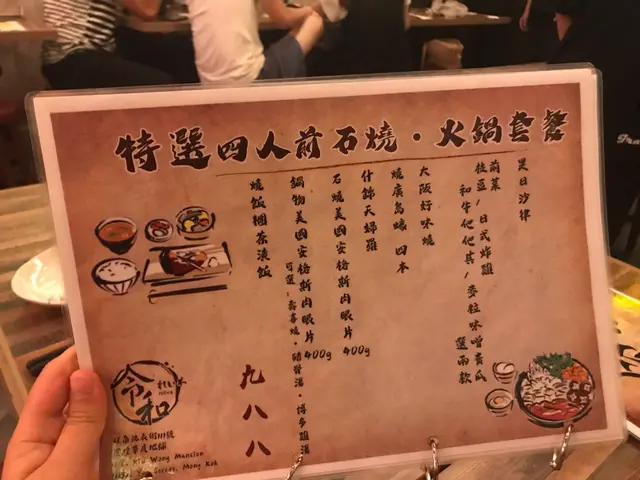 特選四人前石燒・火鍋套餐
是日沙律
前菜
枝豆/日式炸雞
和牛他他其/麥粒味噌青瓜
選兩款
大阪好味燒
燒廣島蠔 四本
什錦天婦羅
石燒美國安格斯肉眼片
400g
鍋物美國安格斯肉眼片
400g
可選:壽喜燒・豬骨湯・博多雞湯
燒飯糰茶漬飯
九八八
令和
Wang Mansion
Mong Kok